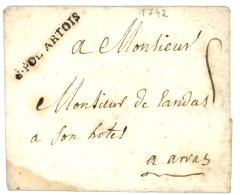 1742
S.POL ARTOIS
a Monsieur
Monsieur de Landas
a son hotel
a arras